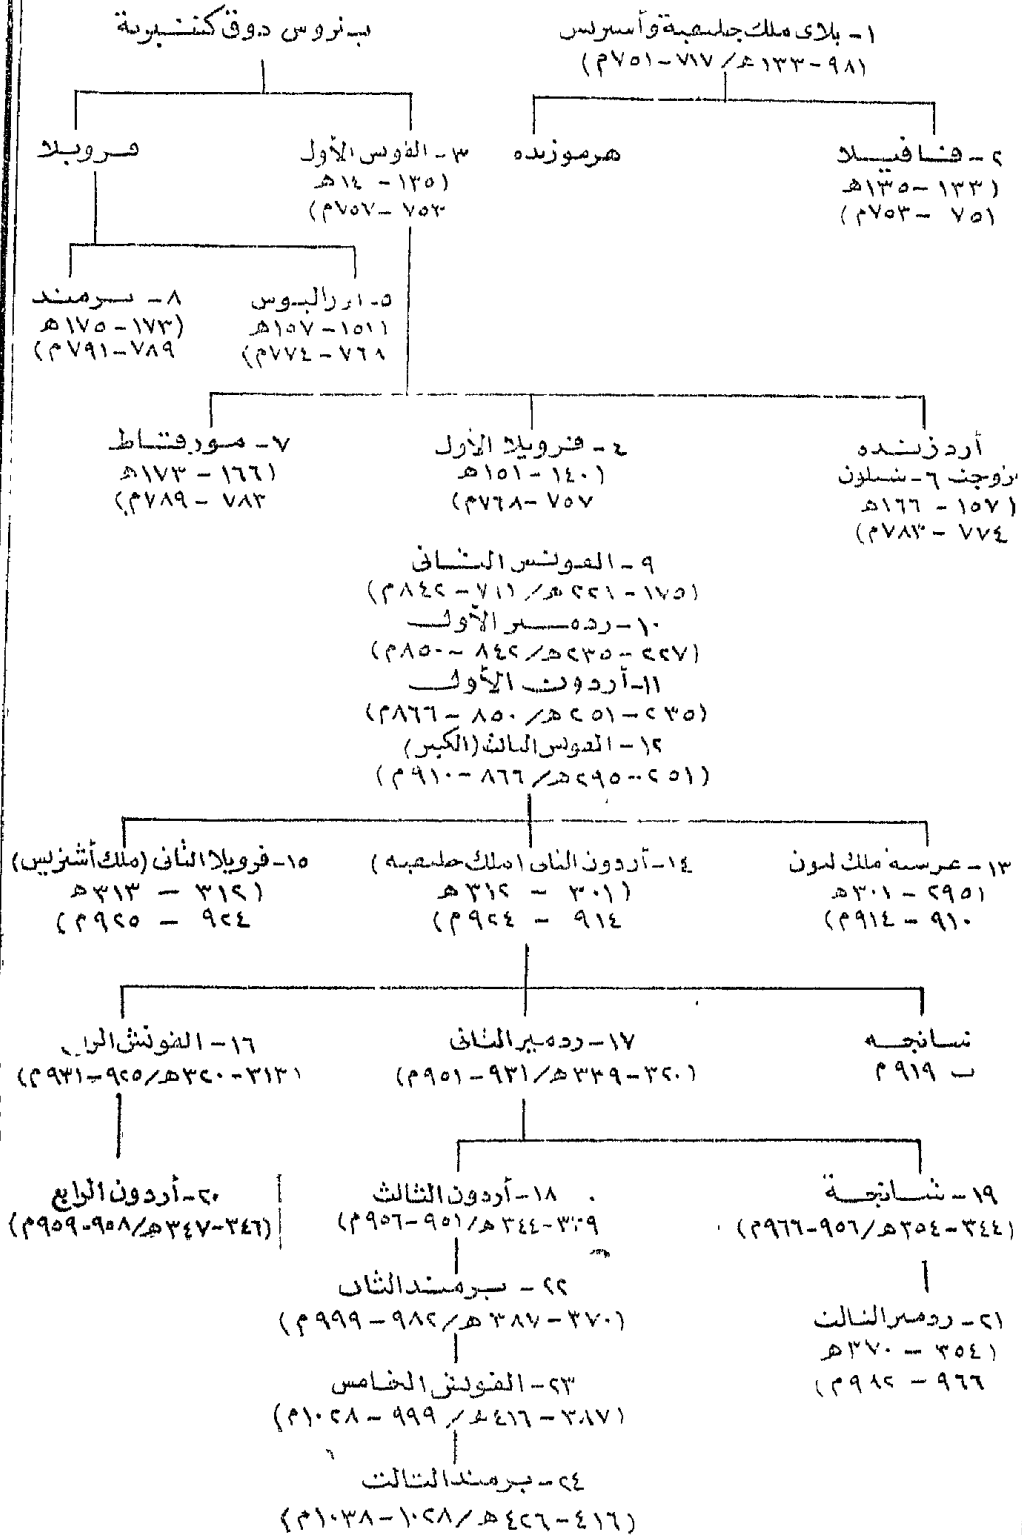 ١- بلاى ملك جليقية وأستريس
(٩٨-١٣٣هـ/٧١٧-٧٥١م)
بتروس دوق كنتبرية
٢- فافيلا
(١٣٣-١٣٥هـ
٧٥١ - ٧٥٣م)
هرموزنده
٣- الفونس الأول
(١٣٥ - ١٤٠هـ
٧٥٣ - ٧٥٧م)
فرويلا
٥- اورالیوس
(١٥١-١٥٧هـ
٧٦٨ - ٧٧٤م)
٨- برمند
(١٧٣-١٧٥هـ
٧٨٩-٧٩١م)
أردزنده
زوجت ٦- شيلون
(١٥٧ - ١٦٦هـ
٧٧٤ - ٧٨٣م)
٤- فرويلا الأول
(١٤٠-١٥١هـ
٧٥٧ - ٧٦٨م)
٧- مورقاط
(١٦٦-١٧٣هـ
٧٨٣ - ٧٨٩م)
٩- الفونس الثانى
(١٧٥-٢٢١هـ/ ٧١١-٨٤٢م)
١٠- ردمير الأول
(٢٢٧-٢٣٥هـ/ ٨٤٢-٨٥٠م)
١١- أردون الأول
(٢٣٥-٢٥١هـ/ ٨٥٠-٨٦٦م)
١٢- الفونس الثالث (الكبير)
(٢٥١-٢٩٥هـ/ ٨٦٦-٩١٠م)
١٣- غرسيه ملك ليون
(295-٣٠١هـ
٩١٠ - ٩١٤م)
١٤- أردون الثانى (ملك جليقيه)
(٣٠١ - ٣١٢هـ
٩١٤ - ٩٢٤م)
١٥- فرويلا الثانى (ملك أشتريس)
(٣١٢ - ٣١٣هـ
٩٢٤ - ٩٢٥م)
شانجه
ت ٩١٩م
١٧- ردمير الثانى
(٣٢٠-٣٣٩هـ/ ٩٣١-٩٥١م)
١٦- الفونش الرابع
(٣١٣-٣٢٠هـ/ ٩٢٥-٩٣١م)
١٩- شانجة
(٣٤٤-٣٥٤هـ/ ٩٥٦-٩٦٦م)
١٨- أردون الثالث
(٣٣٩-٣٤٤هـ/ ٩٥١-٩٥٦م)
٢٠- أردون الرابع
(٣٤٦-٣٤٧هـ/ ٩٥٨-٩٥٩م)
٢٢- برمند الثانى
(٣٧٠-٣٨٧هـ/ ٩٨٢-٩٩٩م)
٢١- ردمير الثالث
(٣٥٤ - ٣٧٠هـ
٩٦٦ - ٩٨٢م)
٢٣- الفونش الخامس
(٣٨٧-٤١٦هـ/ ٩٩٩-١٠٢٨م)
٢٤- برمند الثالث
(٤١٦-٤٢٦هـ/ ١٠٢٨-١٠٣٨م)